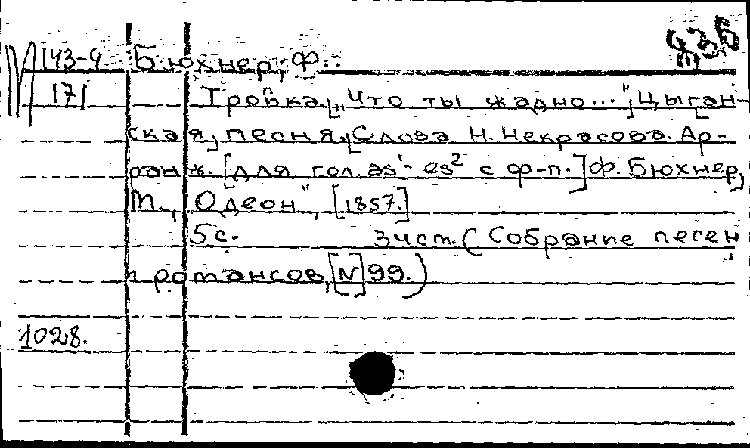 М 143-9 Бюхнер, Ф.
171 Тройка. [„Что ты жадно..."] Цыган-
ская песня. Слова Н. Некрасова. Ар-
ранж. [для гол. as¹- es² с ф-п.] Ф. Бюхнер,
М., „Одеон", [1857.]
5с. 3 чист. (Собрание песен
и романсов, [№] 99.)
1028.